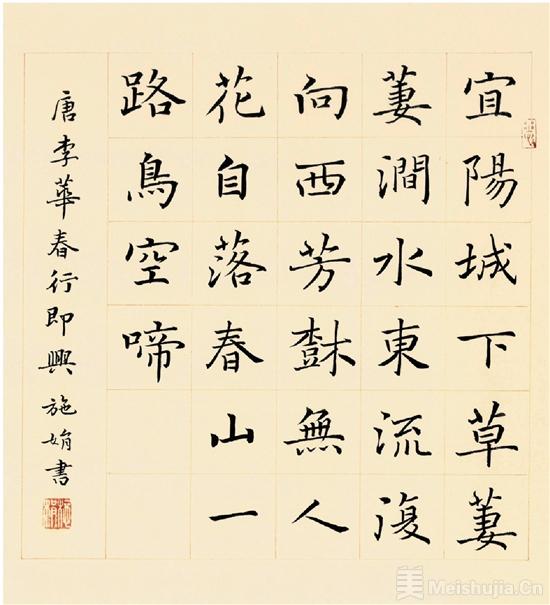 宜陽城下草萋
萋澗水東流復
向西芳樹無人
花自落春山一
路鳥空啼
唐李華春行即興 施娟書
美 Meishujia.Cn